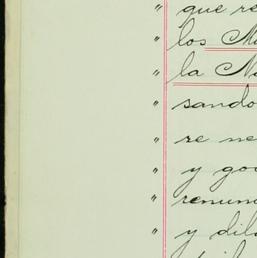 " que re
" los M
" la N
" sando
" re ne
" y go
" renun
" y dil